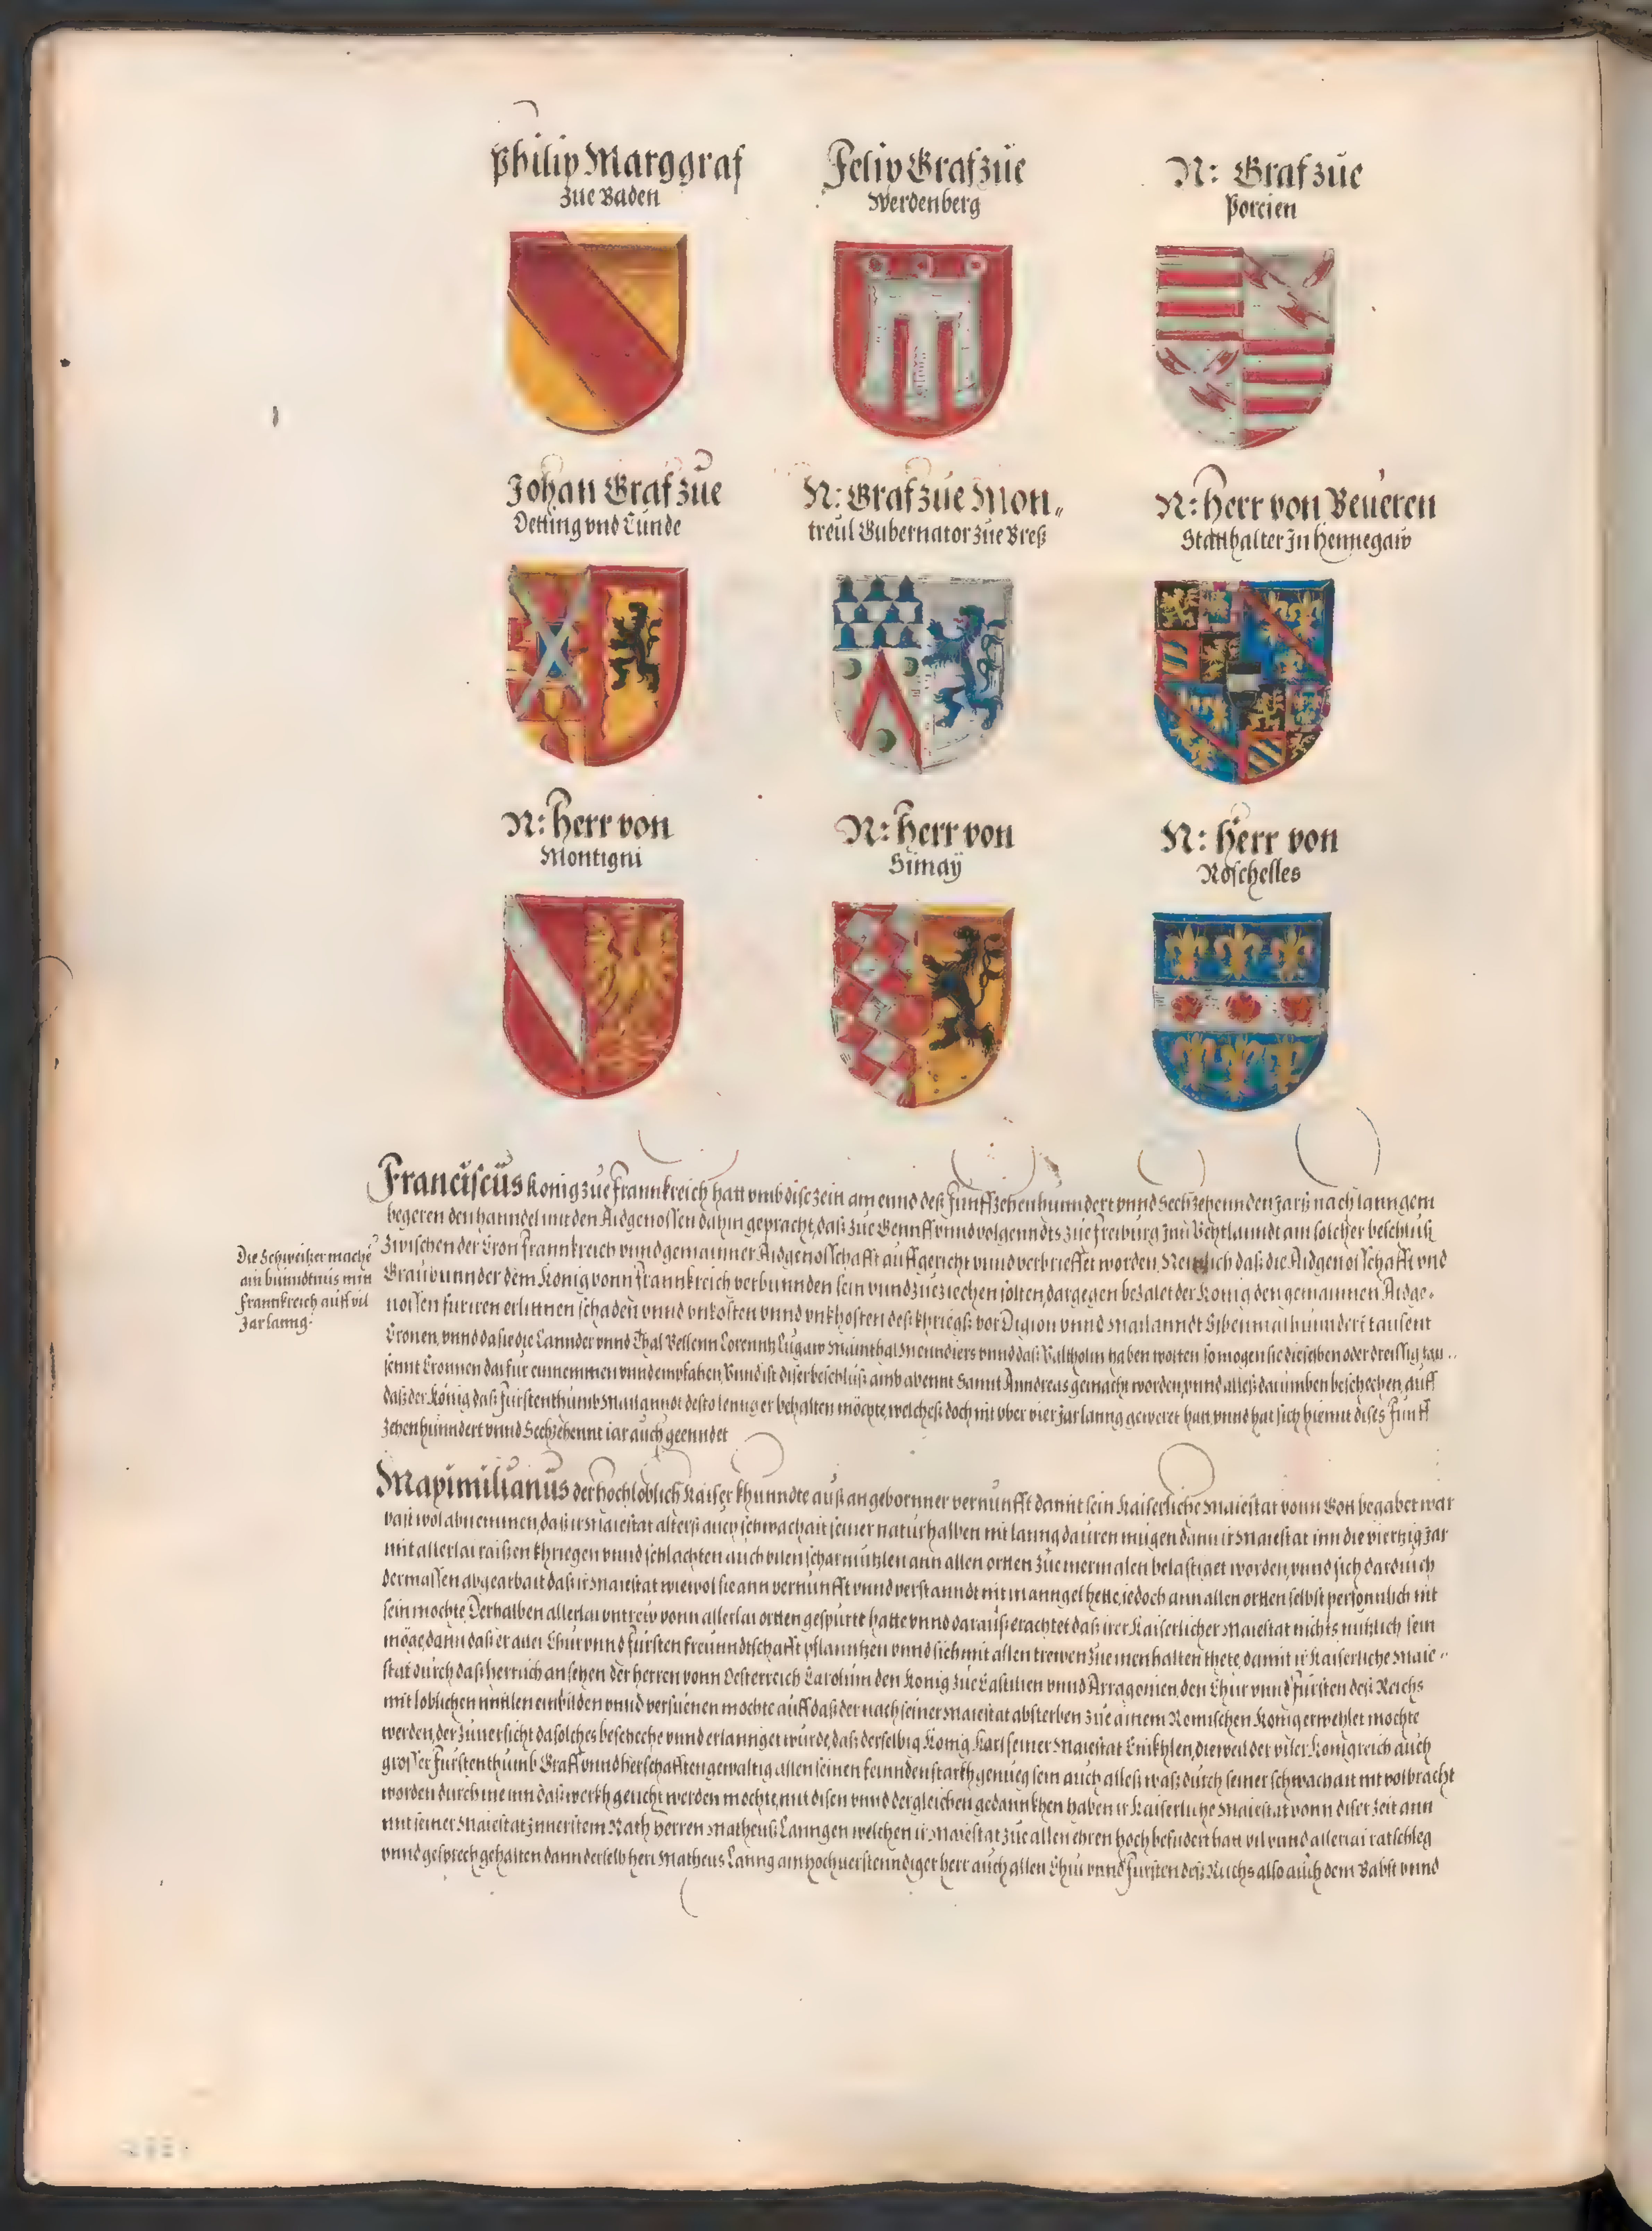 Philip Marggraf
zue Baden
Felix Graf zue
Werdenberg
N: Graf zue
Porcien
Johan Graf zue
Oetting vnd Lunde
N: Graf zue Mon„
treul Gubernator zue Breß
N: Herr von Beueren
Statthalter Jn Hennegaw
N: Herr von
Montigni
N: Herr von
Simay
N: Herr von
Roschelles
Franciscus Konig zue Frannkreich hatt vmb dise zeit am ennd deß Funffzehenhunndert vnnd Sechzehennden Jars nach lanngem
begeren den hanndel mit den Aidgenossen dahin gepracht, daß zue Gennff vnnd volgenndts zue Freiburg Jnn Vchtlanndt ain solcher beschluß
Die Schweitzer mache
ain bunndtnus mitt
Frannkreich auff vil
Jar lanng.
zwischen der Cron Frannkreich vnnd gemainner Aidgenosschafft auffgericht vnnd verbrieffet worden, Nemlich daß die Aidgenosschafft vnd
Graubunnder dem Konig vonn Frannkreich verbunnden sein vnnd zueziechen solten, dargegen bezalet der Konig den gemainnen Aidge-
nossen fur iren erlittnen schaden vnnd vnkosten vnnd vnkhosten deß khriegß vor Digion vnnd Mailanndt Sibenmalhunndert tausent
Cronen, vnnd da sie die Lannder vnnd Thal Bellenn Lorenntz Lugaw Mainthal Menndiers vnnd daß Valtholin haben wolten so mogen sie dieselben oder dreissig tau..
sennt Cronnen dafur einnemmen vnnd empfahen, Vnnd ist diser beschluß amb abennt Sannt Anndreas gemacht worden, vnnd alleß darumben beschechen, auff
daß der König daß Furstenthumb Mailannd desto lenng er behalten möchte, welcheß doch nit vber vier Jar lanng geweret hatt, vnnd hat sich hiemit dises Funff
zehenhunndert vnnd Sechzehennt iar auch geenndet
Maximilianus der hochloblich Kaiser khunndte auß angebornner vernunfft damit sein Kaiserliche Maiestat vonn Gott begabet war
vast wol abnemmen, daß ir Maiestat alterß auch schwachait seiner natur halben nit lanng dauren mugen dann ir Maiestat inn die viertzig Jar
mit allerlai raißen khriegen vnnd schlachten auch vilen scharmutzlen ann allen orten zue mermalen belastiget worden, vnnd sich dardurch
dermassen abgearbait daß ir Maiestat wiewol sie ann vernunfft vnnd verstanndt nit manngel hette, iedoch ann allen ortten selbst personnlich nit
sein mochte, Derhalben allerlai vntrew vonn allerlai ortten gespurtt hatte vnnd darauß erachtet daß irer Kaiserlicher Maiestat nichts nutzlich sein
möge, dann daß er aller Chur vnnd Fursten freunndtschafft pflanntzen vnnd sich mit allen trewen zue inen halten thete, damit ir Kaiserliche Maie..
stat durch daß herrlich ansehen der herren vonn Oesterreich Carolum den Konig zue Castilien vnnd Arragonien, den Chur vnnd Fursten deß Reichs
mit loblichen mittlen einbilden vnnd versuenen mochte auff daß der nach seiner Maiestat absterben zue ainem Romischen Konig erwehlet mochte
werden, der zuuersicht da solches bescheche vnnd erlannget wurde, daß derselbig Konig Karl seiner Maiestat Enikhlen, dieweil der viler Konigreich auch
grosser Furstenthumb Graff vnnd herschafften gewaltig allen seinen feinnden starkh genueg sein auch alleß waß durch seiner schwachait nit volbracht
worden durch ine inn daß werkh gericht werden mochte, mit disen vnnd dergleichen gedannkhen haben ir Kaiserliche Maiestat vonn diser zeit ann
mit seiner Maiestat Jnneristem Rath herren Matheuß Lanngen welchen ir Maiestat zue allen ehren hoch befindert hatt vil vnnd allerlai ratschleg
vnnd gesprech gehalten dann derselb herr Matheus Lanng ain hochuerstenndiger herr auch allen Chur vnnd Fursten deß Reichs also auch dem Babst vnnd